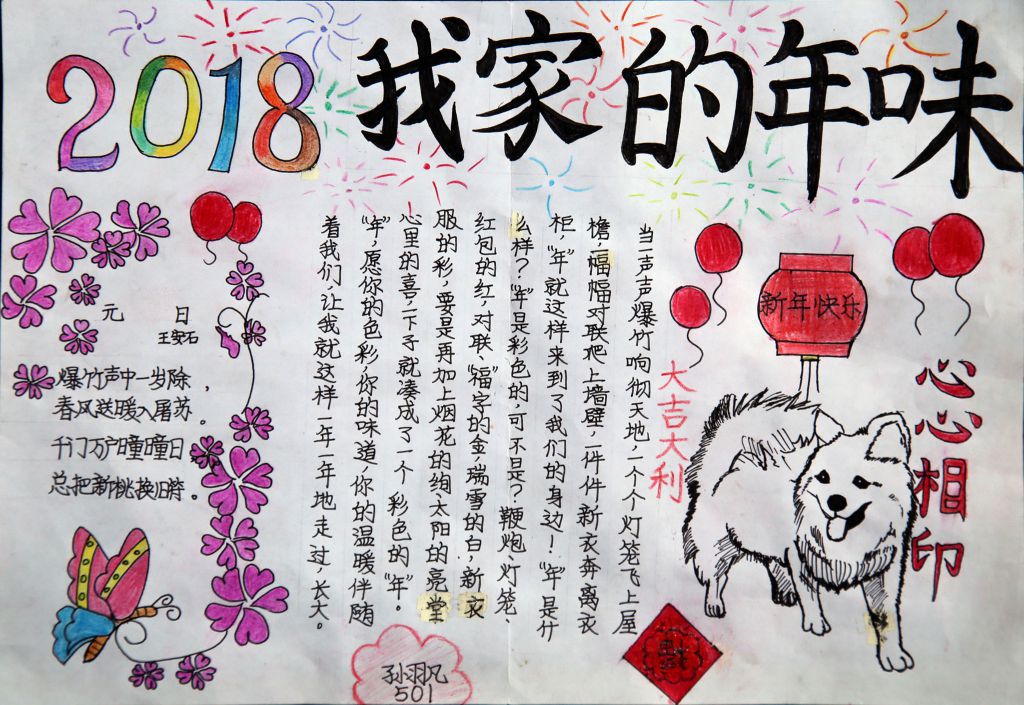 2018
我家的年味
新年快乐
心心相印
大吉大利
当声声爆竹响彻天地,一个个灯笼飞上屋
檐,幅幅对联爬上墙壁,一件件新衣奔离衣
柜,“年”就这样来到了我们的身边!“年”是什
么样?“年”是彩色的,可不是?鞭炮、灯笼、
红包的红,对联、“福”字的金,瑞雪的白,新衣
服的彩,要是再加上烟花的绚,太阳的亮堂
心里的喜,一下子就凑成了一个彩色的“年”。
“年”,愿你的色彩,你的味道,你的温暖伴随
着我们,让我就这样一年一年地走过,长大。
元 日
王安石
爆竹声中一岁除,
春风送暖入屠苏。
千门万户曈曈日,
总把新桃换旧符。
孙羽凡
501